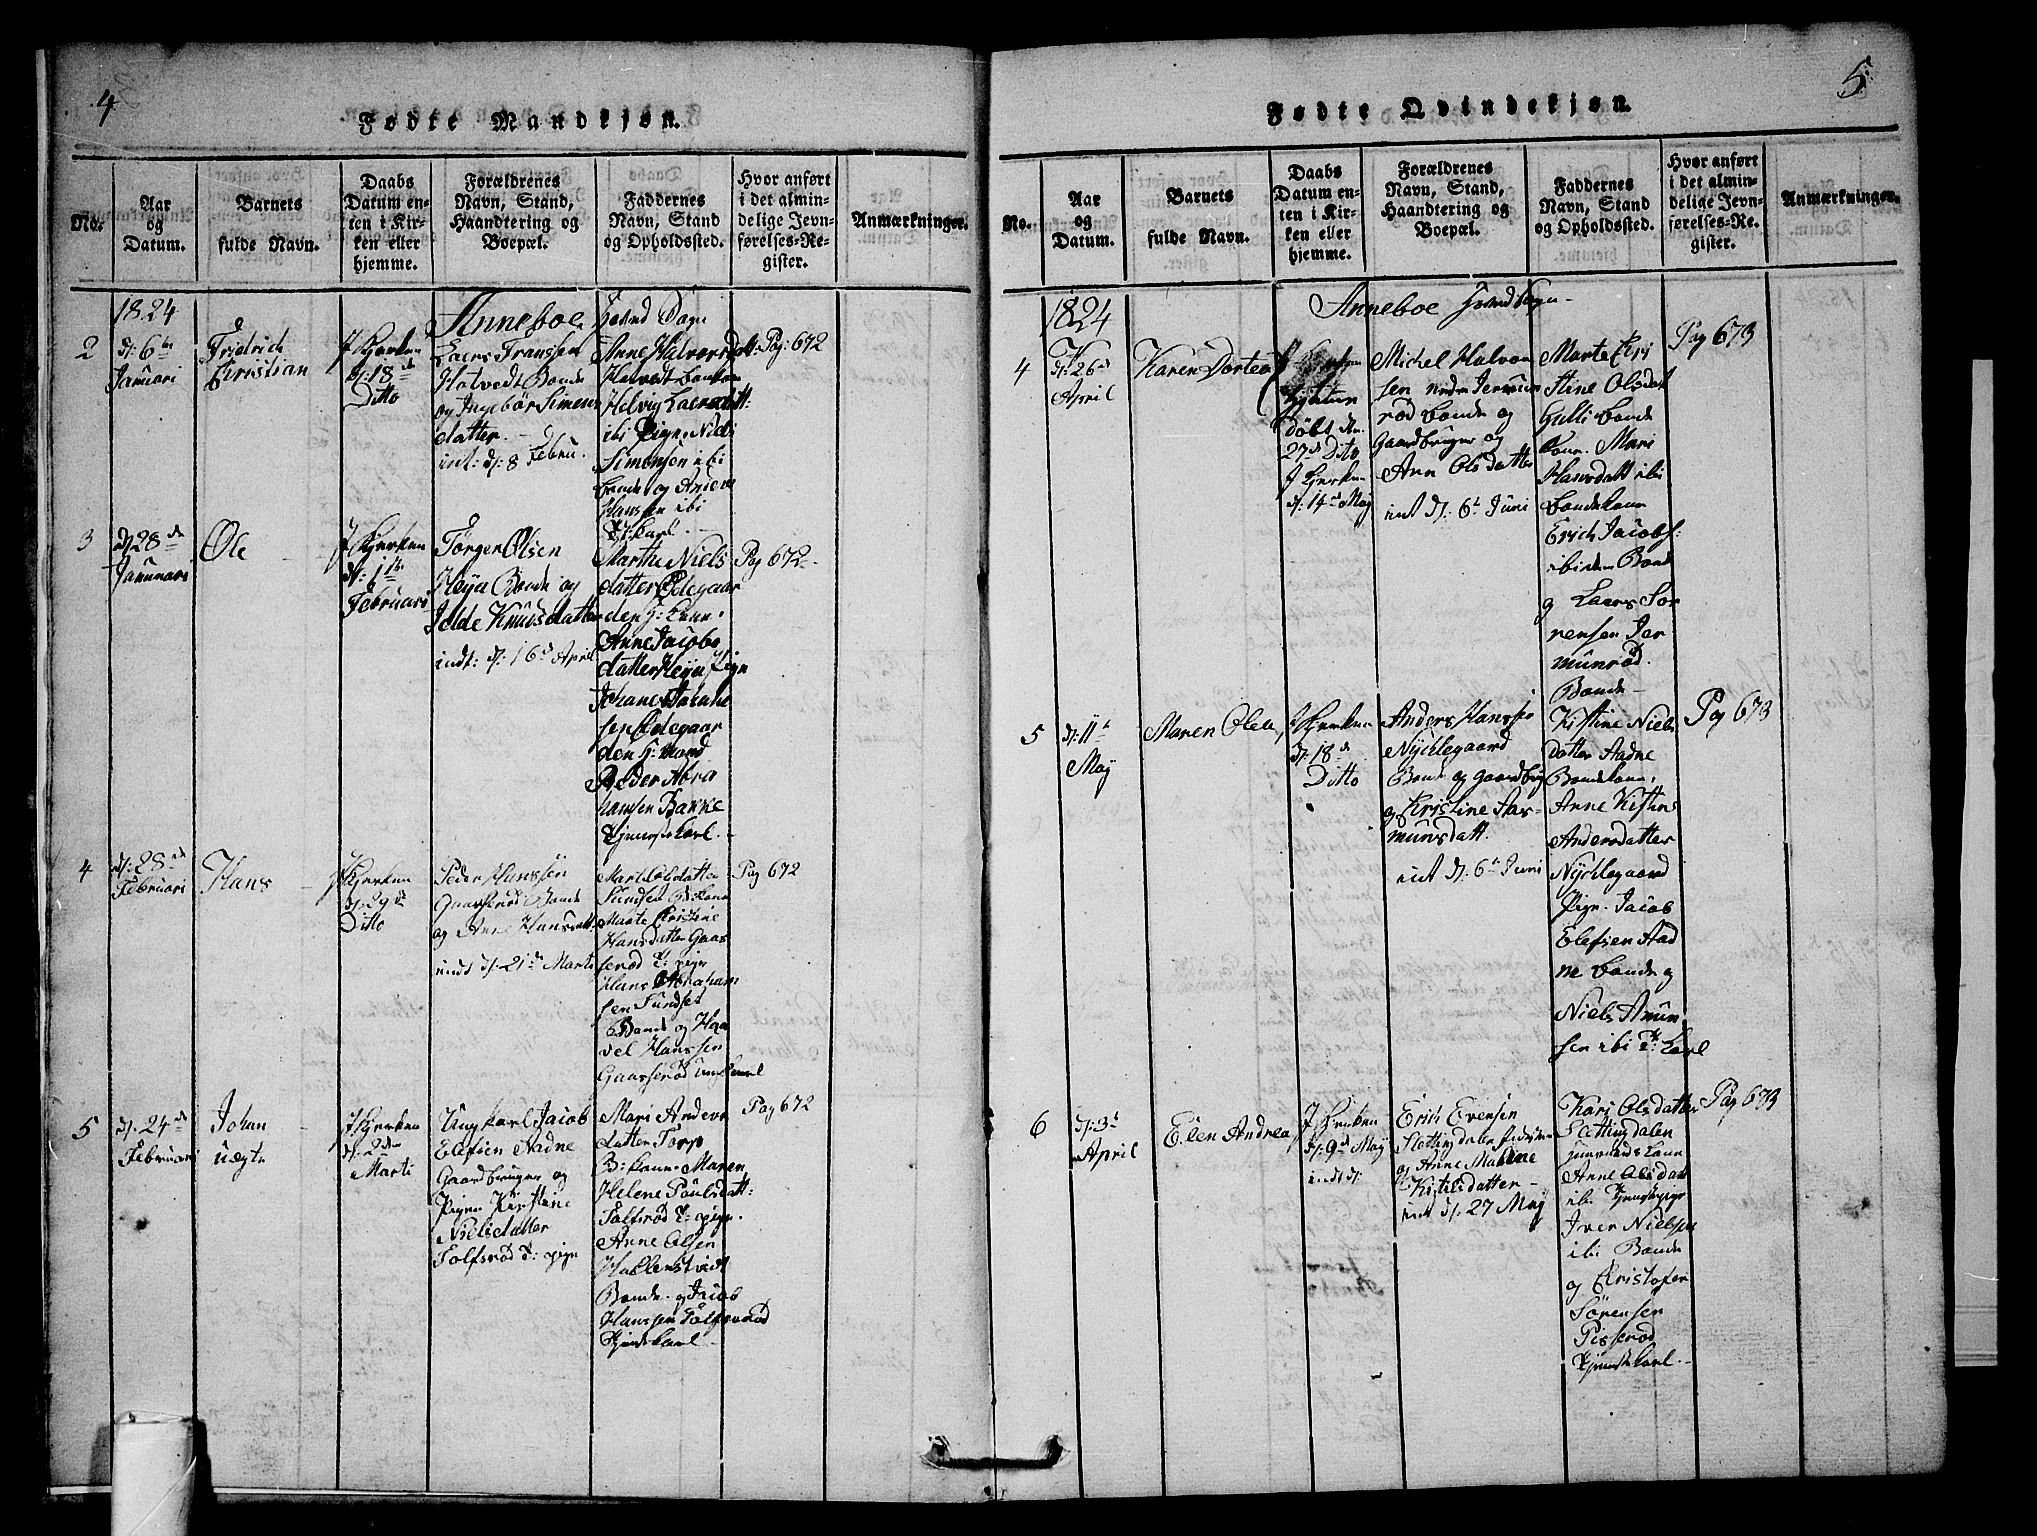 4.
Fødte Mandkjøn.
No.
Aar
og
Datum.
Barnets
fulde Navn.
Daabs
Datum en-
ten i Kir-
ken eller
hjemme.
Forældrenes
Navn, Stand,
Haandtering og
Boepæl.
Faddernes
Navn, Stand
og Opholdssted.
Hvor anført
i det almin-
delige Jevn-
førelses-Re-
gister.
Anmærkninger.
1824
Anneboe
Sogn
2
d: 6te
Januari
Fridrich
Christian
J Kjerken
d: 18de
Ditto
Laers Franssen
Holvedt Bonde
og Ingebör Simens
datter.
int: d: 8 Febru.
Anne Halvorsdatt:
Holvedt bonkone
Helvig Laersdatt:
ibi Pige. Niels
Simensen ibi
bonde og Anders
Hanssen ibi
Pag: 672
3
d 28de
Januari
Ole
J Kjerken
d: 1ste
Februari
Törger Olsen
Høya Bonde og
Jelde Knudsdatter
indt: d: 16d April
Marthe Niels
datter Ødegaar
den
Anne Jacobs
datter Høya Pige
Johanes
sen Ødegaar
den
Peder Abra
hamsen Bakke
Tjenstekarl.
Pag 672
4
d: 28de
Februari
Hans
J Kjerken
d: 29de
Ditto
Peder Hanssen
Gaasserød Bonde
og Anne Hansdatt:
indt d: 21de Marti
Marte Olsdatter
Sundset
Marte Christine
Hansdatter Gaas
serød T: pige
Hans Abraham
sen Sundset
Bonde og Haa
vel Hanssen
Gaasserød ungkarl
Pag 672
5
d: 24de
Februari
Johan
uægte
J Kjerken
d: 2den
Marti
Ungkarl Jacob
Elefsen Aadne
Gaardbruger og
Pigen Kirstine
Nielsdatter
Tolfsrød T: pige
Mari Anders
datter Torp
B: kone. Maren
Helene Poulsdatt:
Tolfsrød T: pige.
Anne Olsen
Hallenstvedt
Bonde. og Jacob
Hanssen Tolfsrød
Tjenstekarl.
Pag 672
5.
Fødte Qvindekjøn.
No.
Aar
og
Datum.
Barnets
fulde Navn.
Daabs
Datum en-
ten i Kir-
ken eller
hjemme.
Forældrenes
Navn, Stand,
Haandtering og
Boepæl.
Faddernes
Navn, Stand
og Opholdssted.
Hvor anført
i det almin-
delige Jevn-
førelses-Re-
gister.
Anmærkninger.
1824
Anneboe
4
d: 26de
April
Karen Dortea
döbt den
27de Dito
J Kjerken
d: 14de May
Michel Halvor
sen nedre Jermun
rød bonde og
Gaardbruger og
Ann Olsdatter
int d: 6te Juni
Marte Kri
stine Olsdatt
Gulli bonde
kone. Mari
Hansdatt ibi
bondekone
Erich Jacobs:
ibidem Bonde
og Laers Sö
rensen Jer
munröd.
Bonde
Pag 673
5
d: 11te
May
Maren Olea
J Kjerken
d: 18de
Ditto
Anders Hanssen
Nÿchlegaard
Bonde og gaardbrug
og Kristine Aas
munsdatt.
int d: 6te Juni
Kistine Niels
Datter Aadne
Bondekone.
Anne Kistine
Andersdatter
Nÿchlegaard
Pige. Jacob
Elefsen Aad
ne bonde og
Niels Amun
sen ibi T: karl
Pag 673
6
d: 3de
April
Elen Andrea
J Kjerken
d: 9de May
Erich Evensen
Slettingdalen
og Anne Malene
Kistelsdatter
int d: 27 May
Kari Olsdatter
Slettingdalen
Anne Olsdatt
ibi
Iver Nielsen
ibi Bonde
og Christofer
Sörensen
Pisseröd
Tjenstekarl.
Pag 673